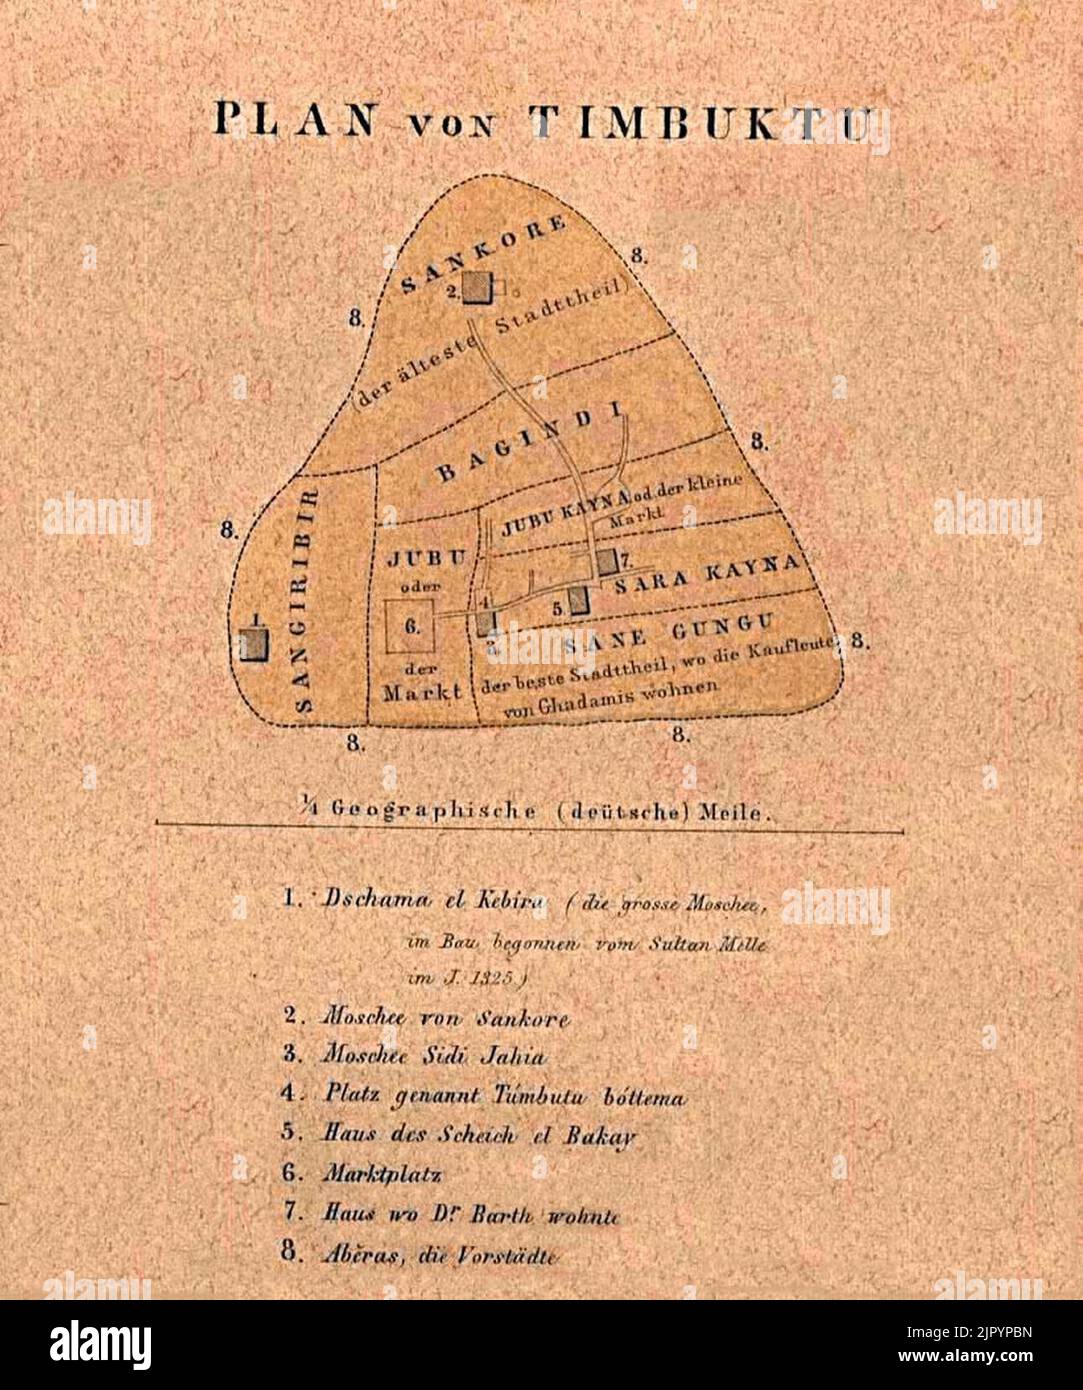 PLAN VON TIMBUKTU
SANKORE
2.
(der älteste Stadttheil)
8.
8.
BAGINDI
8.
8.
JUBU KAYNA od. der kleine
Markt
SANGIRIBIR
1.
JUBU
oder
6.
der
Markt
4.
3.
5.
7.
SARA KAYNA
SANE GUNGU
der beste Stadttheil, wo die Kaufleute
von Ghadamis wohnen
8.
8.
8.
¼ Geographische (deütsche) Meile.
1. Dschama el Kebira (die grosse Moschee,
im Bau begonnen vom Sultan Melle
im J. 1325)
2. Moschee von Sankore
3. Moschee Sidi Jahia
4. Platz genannt Túmbutu bóttema
5. Haus des Scheich el Bakay
6. Marktplatz
7. Haus wo Dr. Barth wohnte
8. Abĕras, die Vorstädte
alamy
Image ID: 2JPYPBN
www.alamy.com